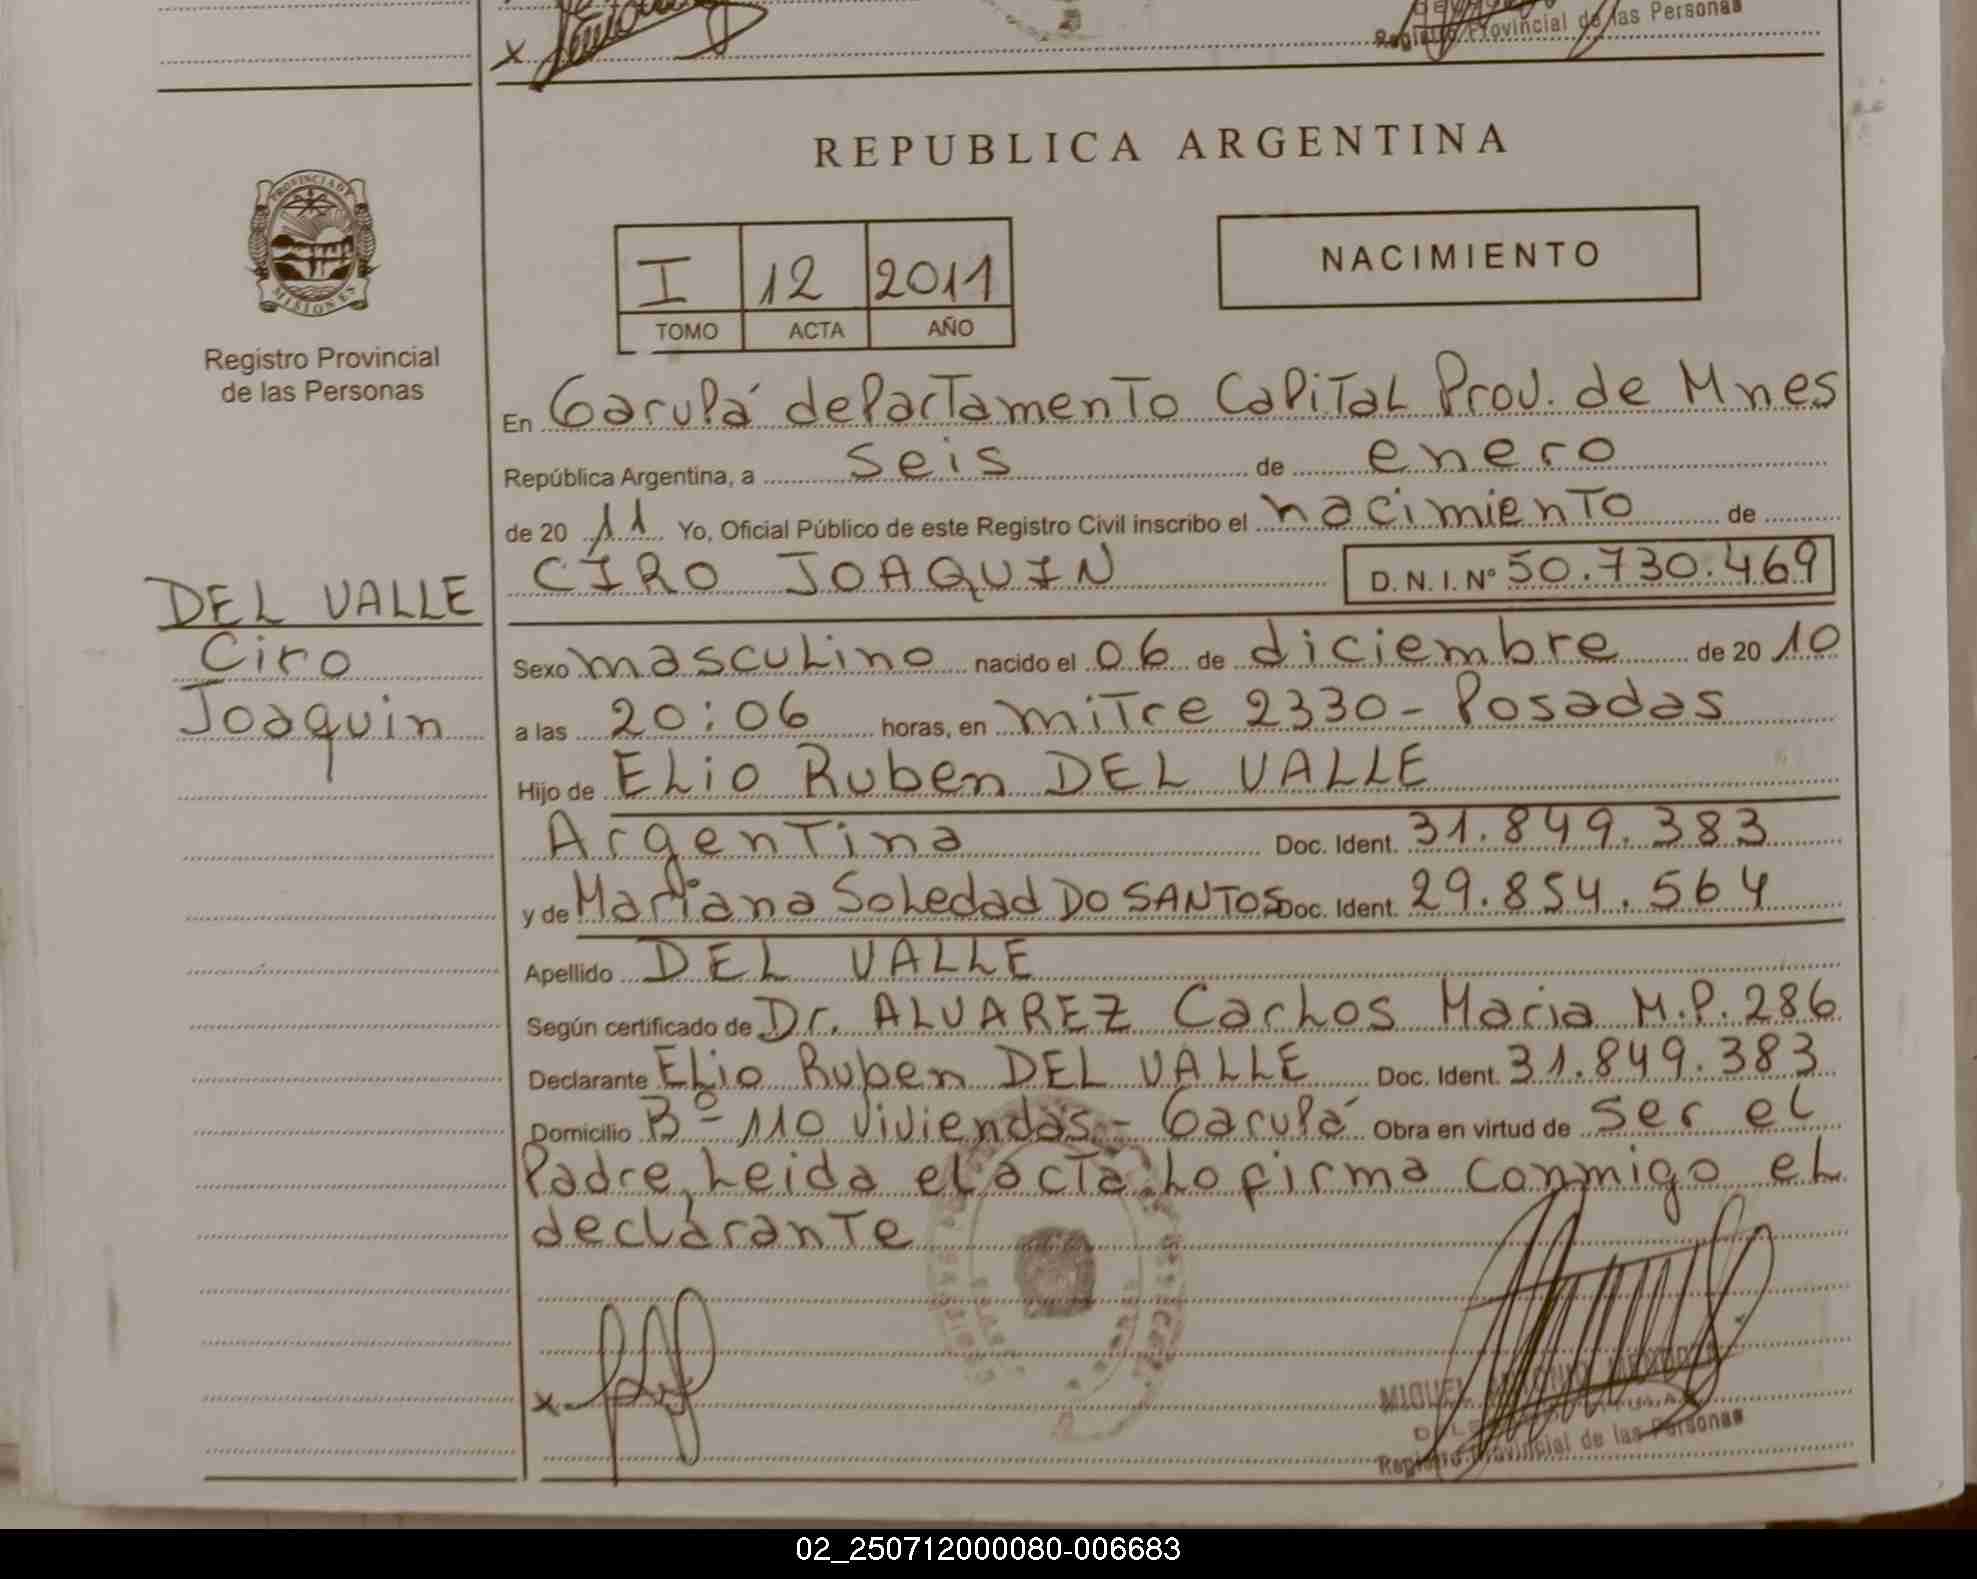 Registro Provincial de las Personas
REPUBLICA ARGENTINA
PROVINCIA DE
MISIONES
Registro Provincial
de las Personas
I 12 2011
TOMO ACTA AÑO
NACIMIENTO
En Garupá departamento Capital Prov. de Mnes
República Argentina, a seis de enero
de 20 11 Yo, Oficial Público de este Registro Civil inscribo el nacimiento de
CIRO JOAQUIN D.N.I. Nº 50.730.469
DEL VALLE
Ciro
Joaquin
Sexo masculino nacido el 06 de diciembre de 20 10
a las 20:06 horas, en mitre 2330 - Posadas
Hijo de Elio Ruben DEL VALLE
Argentina Doc. Ident. 31.849.383
y de Mariana Soledad DO SANTOS Doc. Ident. 29.854.564
Apellido DEL VALLE
Según certificado de Dr. ALVAREZ Carlos Maria M.P. 286
Declarante Elio Ruben DEL VALLE Doc. Ident. 31.849.383
Domicilio Bº 110 viviendas - Garupá Obra en virtud de ser el
Padre, Leida el acta Lo firma conmigo el
declarante
x
MIGUEL
Registro Provincial de las Personas
02_250712000080-006683